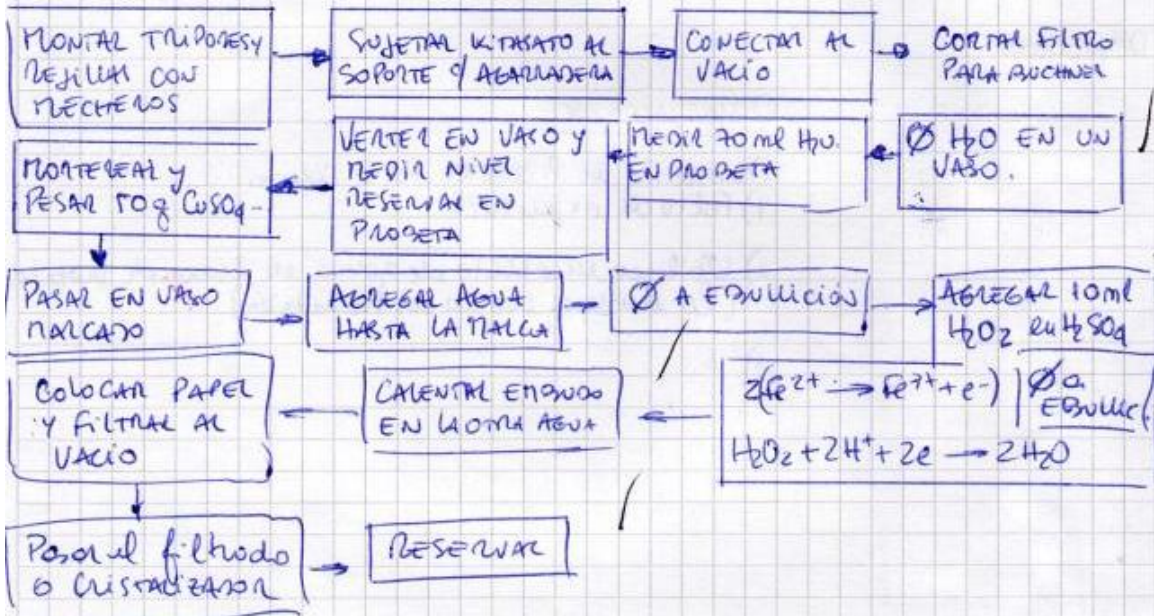 MONTAR TRIPODES y
REJILLAS CON
MECHEROS
SUJETAR KITASATO AL
SOPORTE c/ AGARRADERA
CONECTAR AL
VACIO
CORTAR FILTRO
PARA BUCHNER
Ø H2O EN UN
VASO.
MEDIR 70 ml H2O
EN PROBETA
VERTER EN VASO y
MEDIR NIVEL
RESERVAR EN
PROBETA
MORTEREAR y
PESAR 50 g CuSO4-
PASAR EN VASO
MARCADO
AGREGAR AGUA
HASTA LA MARCA
Ø A EBULLICIÓN
AGREGAR 10 ml
H2O2 en H2SO4
2(Fe2+ → Fe3+ + e-)
H2O2 + 2H+ + 2e → 2H2O
Ø a
EBULLIC
CALENTAR EMBUDO
EN LA OTRA AGUA
COLOCAR PAPEL
Y FILTRAR AL
VACIO
Pasar el filtrado
a CRISTALIZADOR
RESERVAR